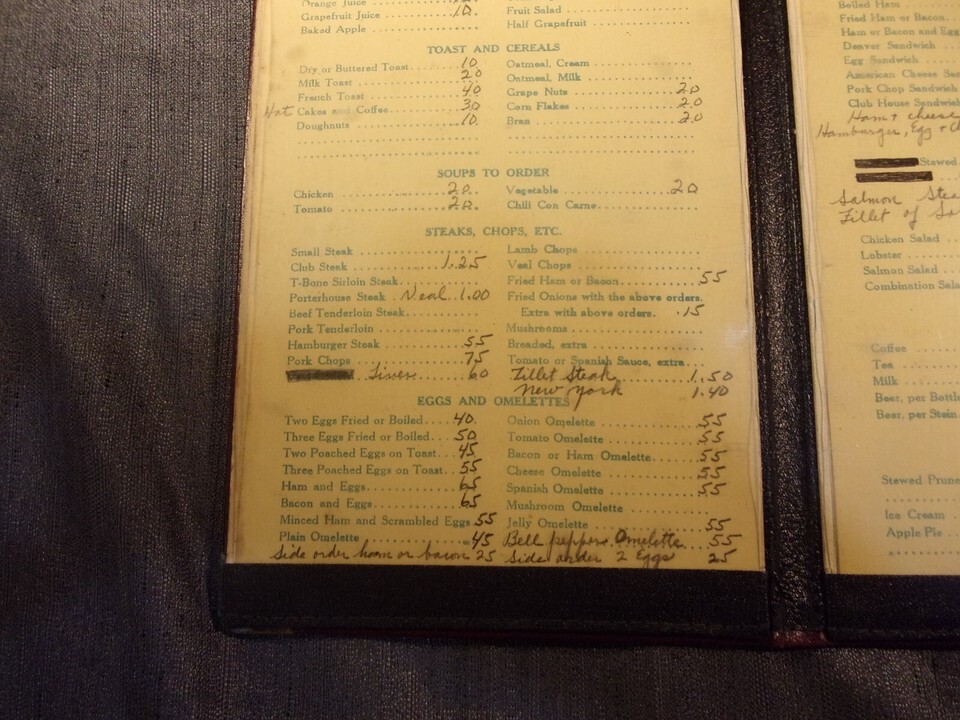 Orange Juice
Grapefruit Juice 10.
Baked Apple
Fruit Salad
Half Grapefruit
TOAST AND CEREALS
Dry or Buttered Toast 10
Milk Toast 20
French Toast 40
Hot Cakes and Coffee 30
Doughnuts 10.
Oatmeal, Cream
Oatmeal, Milk
Grape Nuts 20
Corn Flakes 20
Bran 20
SOUPS TO ORDER
Chicken 20
Tomato 20
Vegetable 20
Chili Con Carne
STEAKS, CHOPS, ETC.
Small Steak
Club Steak 1.25
T-Bone Sirloin Steak
Porterhouse Steak Veal 1.00
Beef Tenderloin Steak
Pork Tenderloin
Hamburger Steak 55
Pork Chops 75
Liver 60
Lamb Chops
Veal Chops
Fried Ham or Bacon 55
Fried Onions with the above orders.
Extra with above orders. .15
Mushrooms
Breaded, extra
Tomato or Spanish Sauce, extra
Fillet Steak 1.50
New York 1.40
EGGS AND OMELETTES
Two Eggs Fried or Boiled 40
Three Eggs Fried or Boiled 50
Two Poached Eggs on Toast 45
Three Poached Eggs on Toast 55
Ham and Eggs 65
Bacon and Eggs 65
Minced Ham and Scrambled Eggs 55
Plain Omelette 45
Side order ham or bacon 25
Onion Omelette 55
Tomato Omelette 55
Bacon or Ham Omelette 55
Cheese Omelette 55
Spanish Omelette 55
Mushroom Omelette
Jelly Omelette 55
Bell peppers Omelette 55
Side order 2 Eggs 25
Boiled Ham
Fried Ham or Bacon
Ham or Bacon and Egg
Denver Sandwich
Egg Sandwich
American Cheese
Pork Chop Sandwich
Club House Sandwich
Ham + cheese
Hamburger, Egg +
Stewed
Salmon
Fillet of
Chicken Salad
Lobster
Salmon Salad
Combination
Coffee
Tea
Milk
Beer, per
Beer, per Stein
Stewed
Ice Cream
Apple Pie